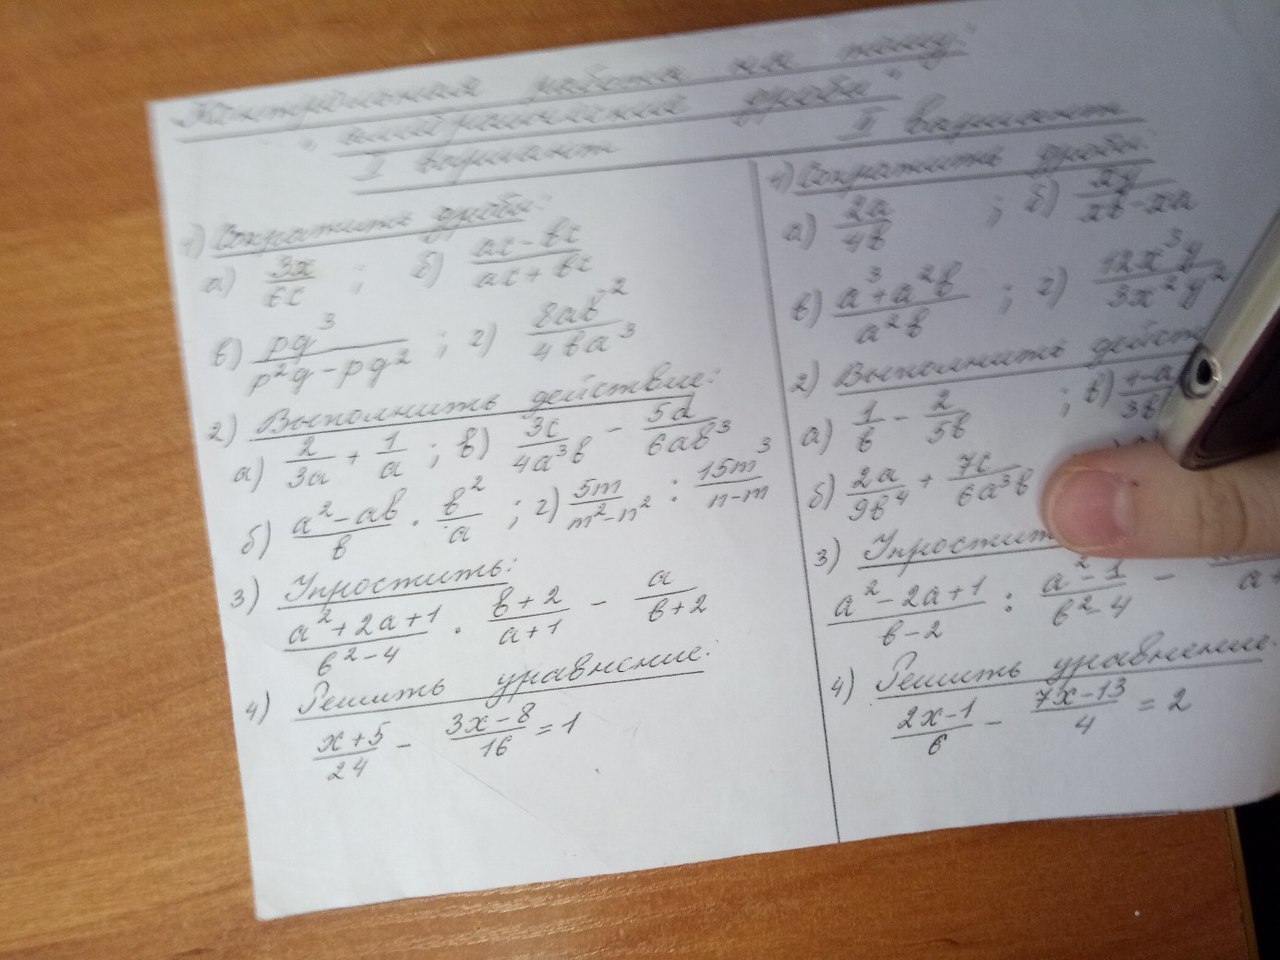 Контрольная работа на тему:
"Алгебраические дроби"
I вариант
1) Сократить дроби:
а) 3x/6c ; б) (ac - bc)/(ac + bc)
в) pq³/(p²q - pq²) ; г) 8ab²/4ba³
2) Выполнить действие:
а) 2/3a + 1/a ; в) 3c/4a³b - 5d/6ab³
б) (a² - ab)/b · b²/a ; г) 5m/(m² - n²) : 15m³/(n - m)
3) Упростить:
(a² + 2a + 1)/(b² - 4) · (b + 2)/(a + 1) - a/(b + 2)
4) Решить уравнение:
(x + 5)/24 - (3x - 8)/16 = 1
II вариант
1) Сократить дробь:
а) 2a/4b ; б) 2y/
в) (a³ + a²b)/a²b ; г) 12x³y/3x²y²
2) Выполнить дейст
а) 1/b - 2/5b ; в)
б) 2a/9b⁴ + 7c/6a³b
3) Упростить
(a² - 2a + 1)/(b - 2) : (a² - 1)/(b² - 4) -
4) Решить уравнение:
(2x - 1)/6 - (7x - 13)/4 = 2